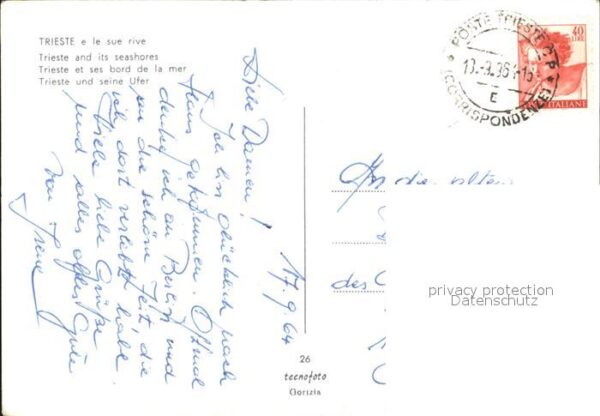 TRIESTE e le sue rive
Trieste and its seashores
Trieste et ses bord de la mer
Trieste und seine Ufer
17.9.64
Liebe Damen!
Ich bin glücklich nach
Haus gekommen. Oftmal
denke ich an Berlin und
an die schöne Zeit die
ich dort verlebt habe.
Viele liebe Grüße
und alles Gute
Irene
26
tecnofoto
Gorizia
POSTE TRIESTE
(CORRISPONDENZE)
E
40
LIRE
ITALIANE
An die
des
privacy protection
Datenschutz